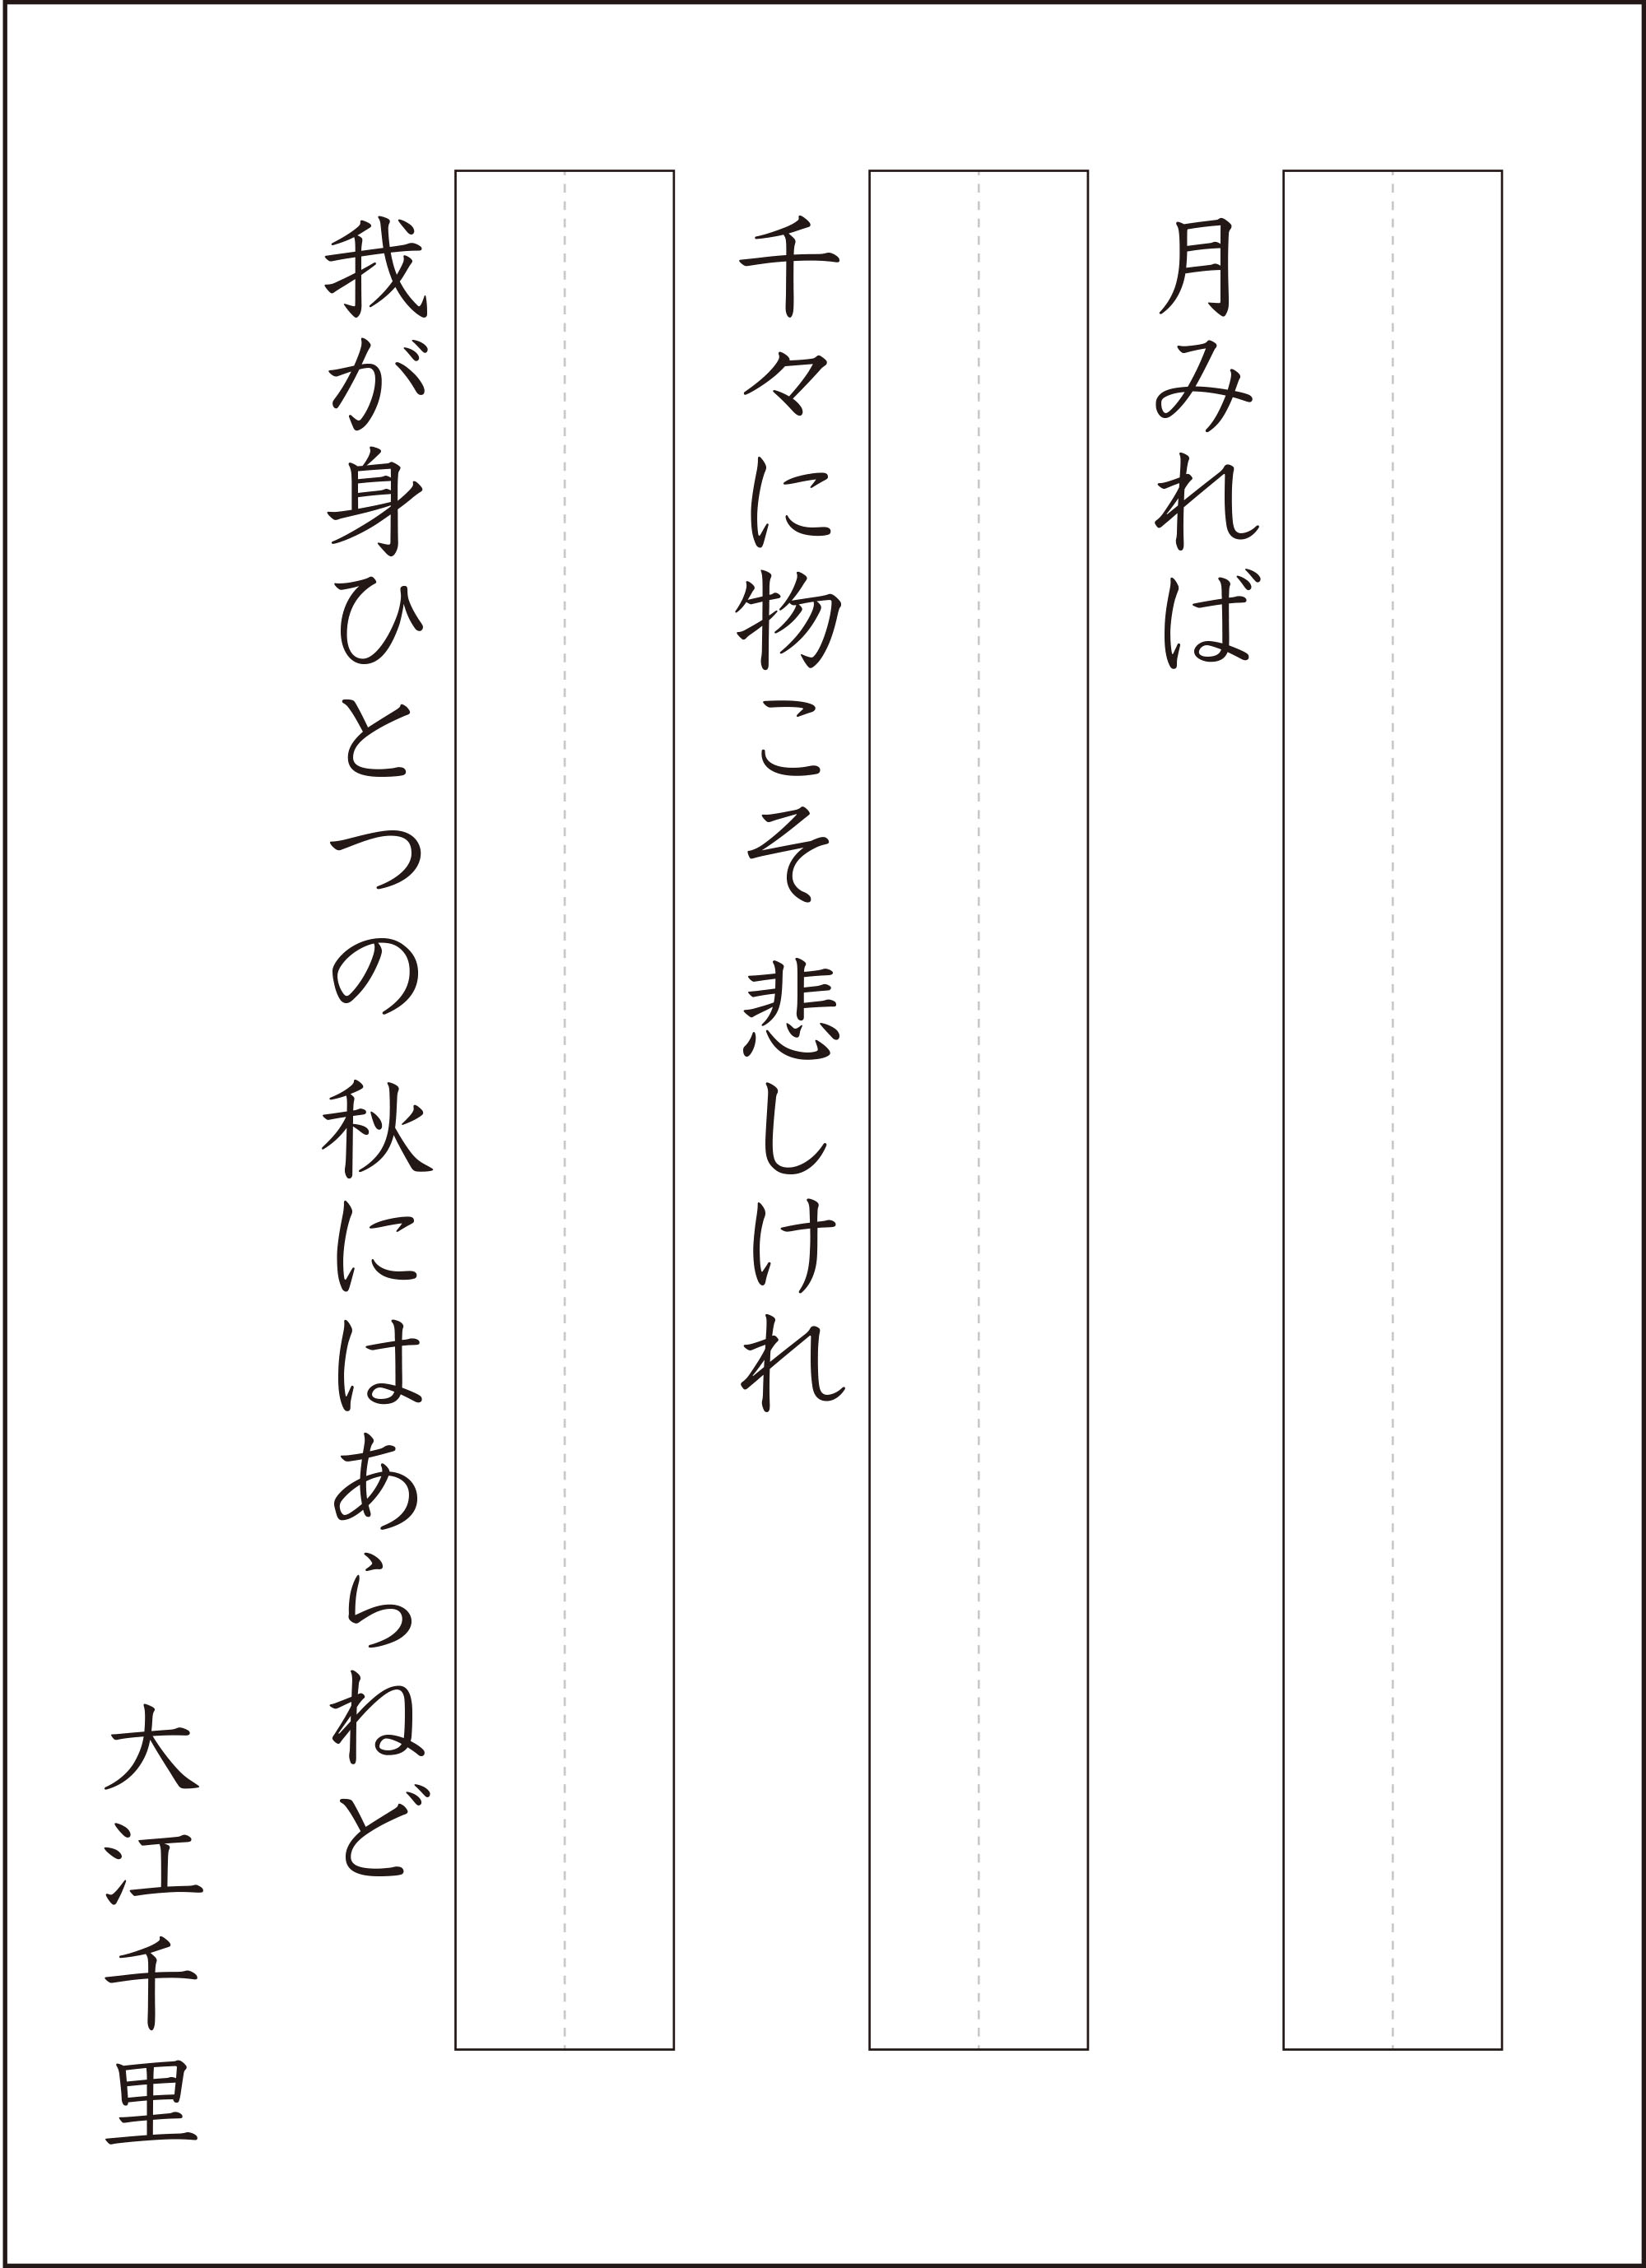 月みれば
千々に物こそ悲しけれ
我が身ひとつの秋にはあらねど
大江千里